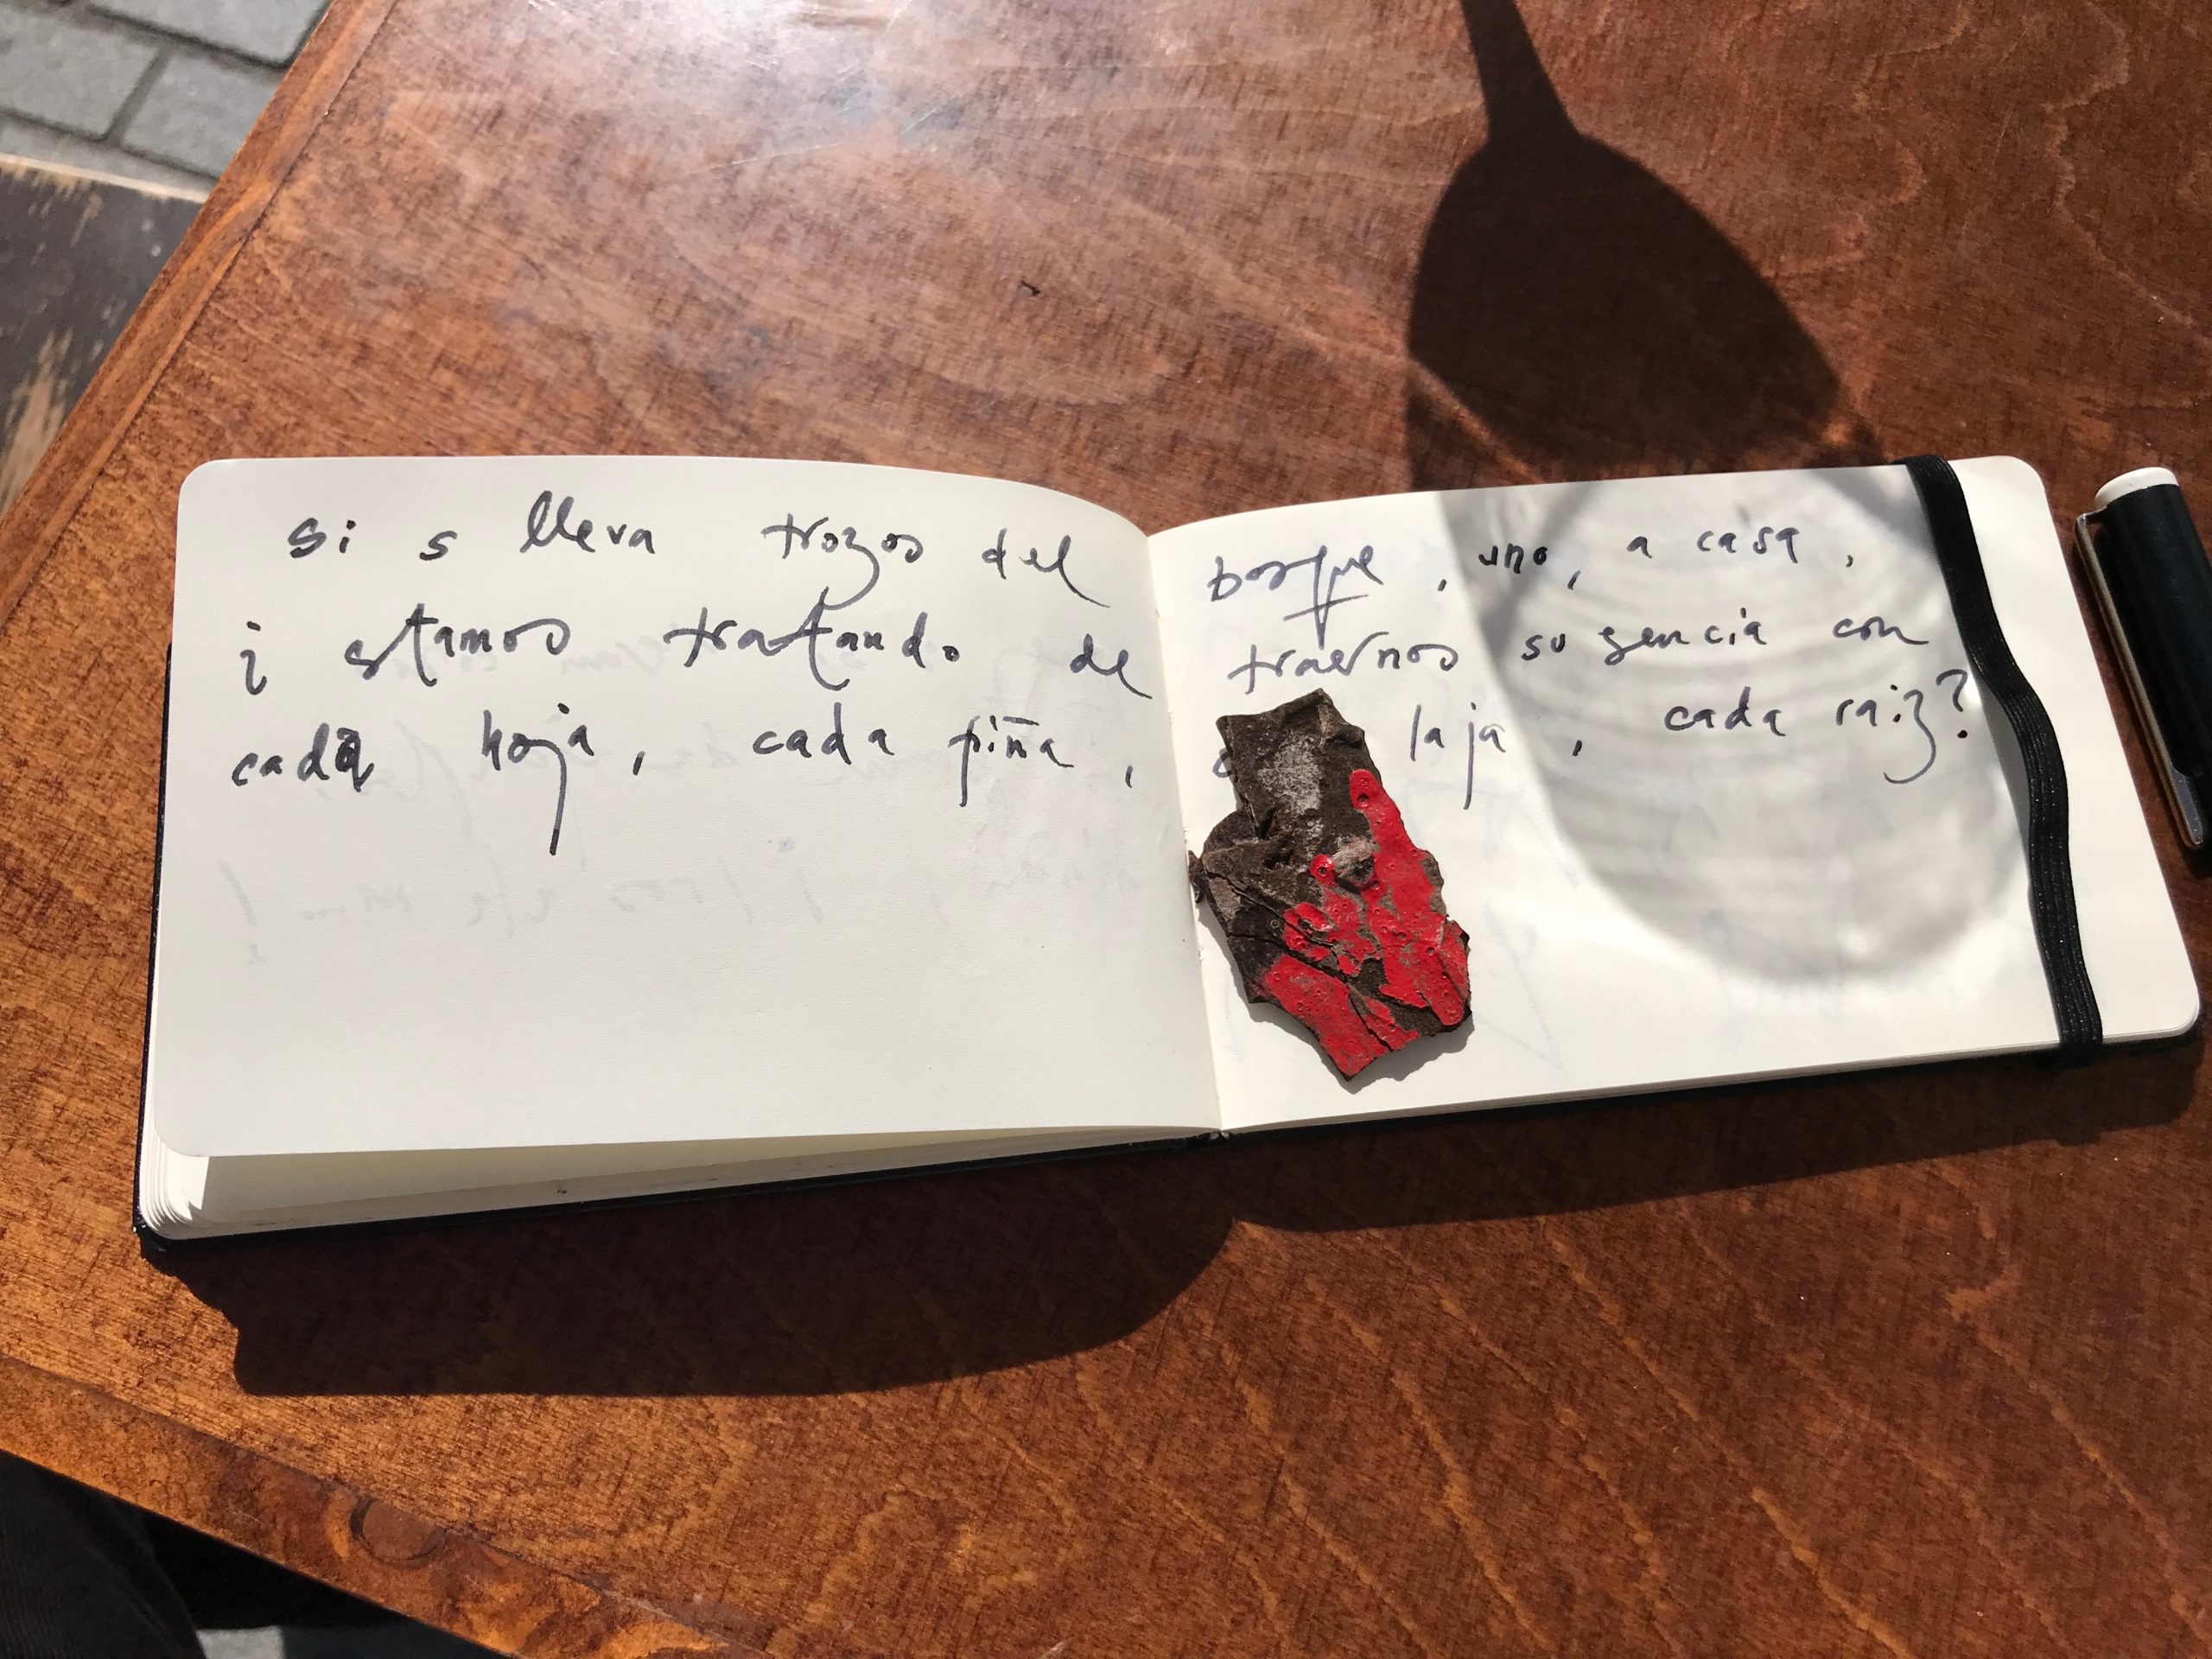 si s lleva trozos del bosque, uno, a casa,
¿ stamos tratando de traernos su sencia con
cada hoja, cada piña, laja, cada raiz?